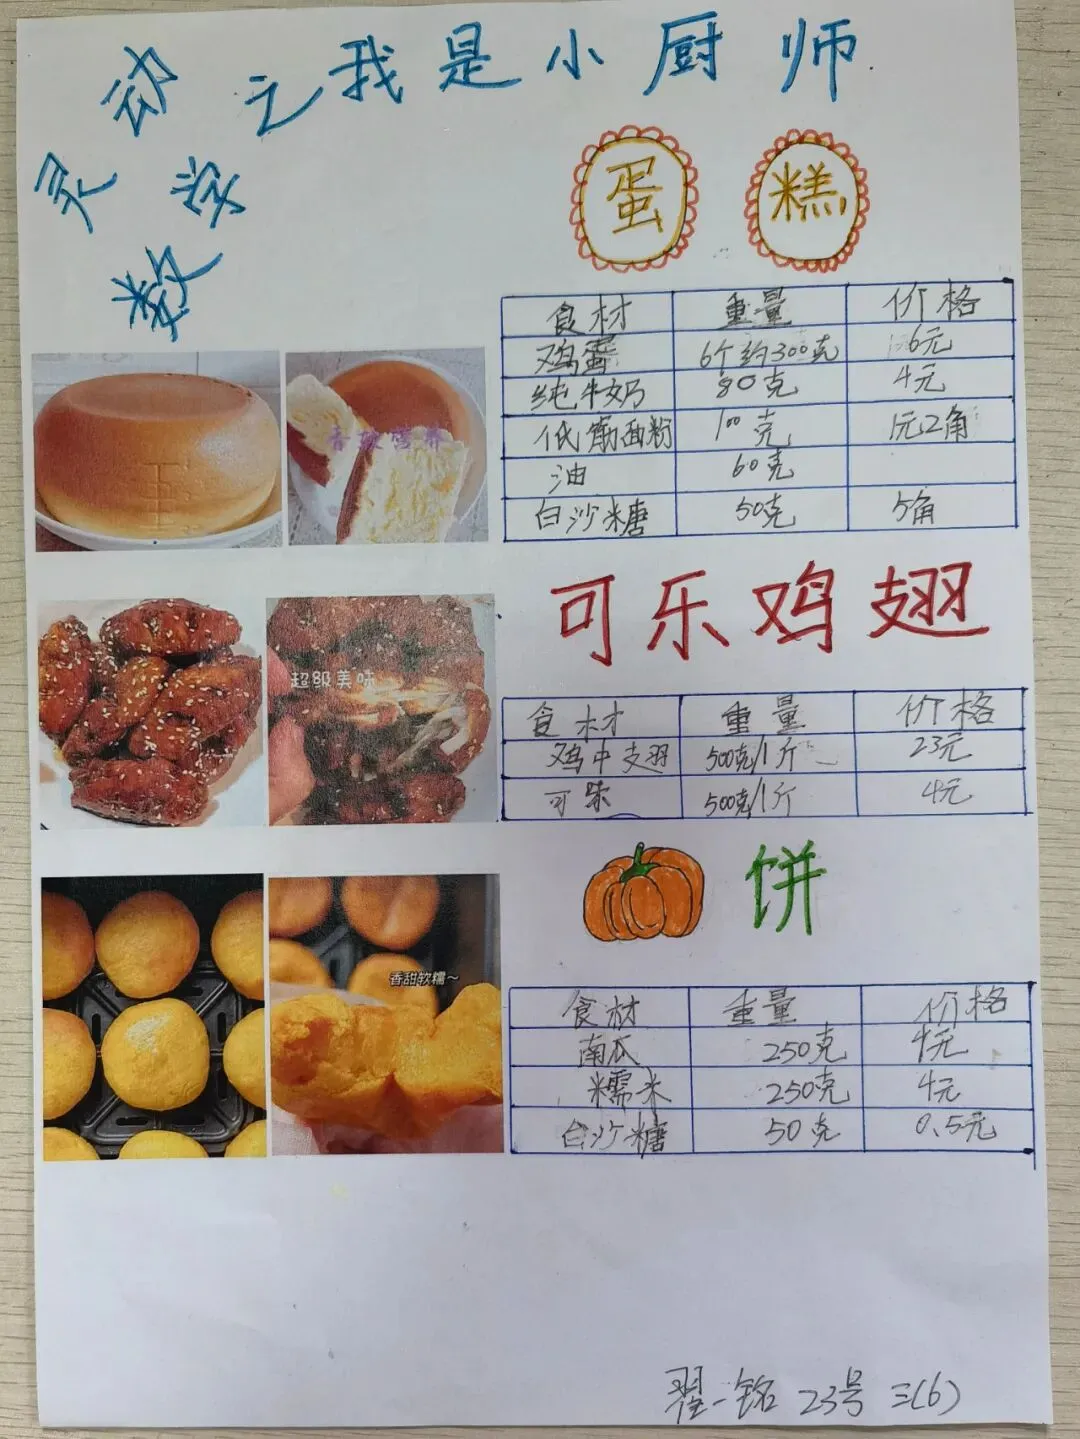 灵动数学之我是小厨师
蛋糕
食材 重量 价格
鸡蛋 6个约300克 6元
纯牛奶 80克 4元
低筋面粉 100克 1元2角
油 60克
白沙糖 50克 5角
香软营养
可乐鸡翅
食材 重量 价格
鸡中支翅 500克/1斤 23元
可乐 500克/1斤 4元
超级美味
饼
食材 重量 价格
南瓜 250克 4元
糯米 250克 4元
白沙糖 50克 0.5元
香甜软糯~
翟一铭 23号 三(6)